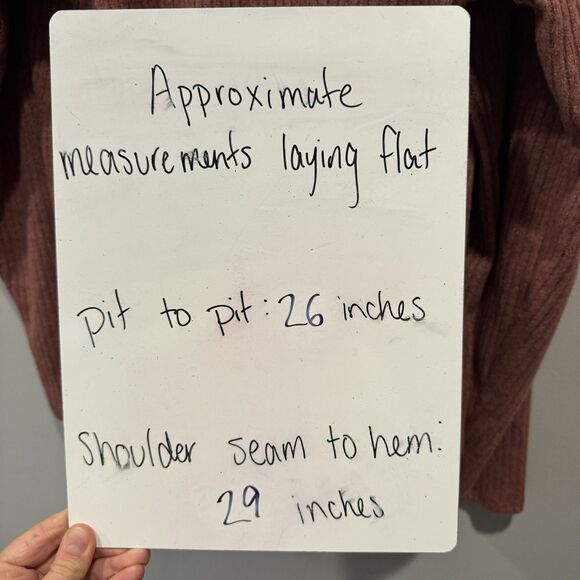 Approximate
measurements laying flat
pit to pit: 26 inches
shoulder seam to hem:
29 inches